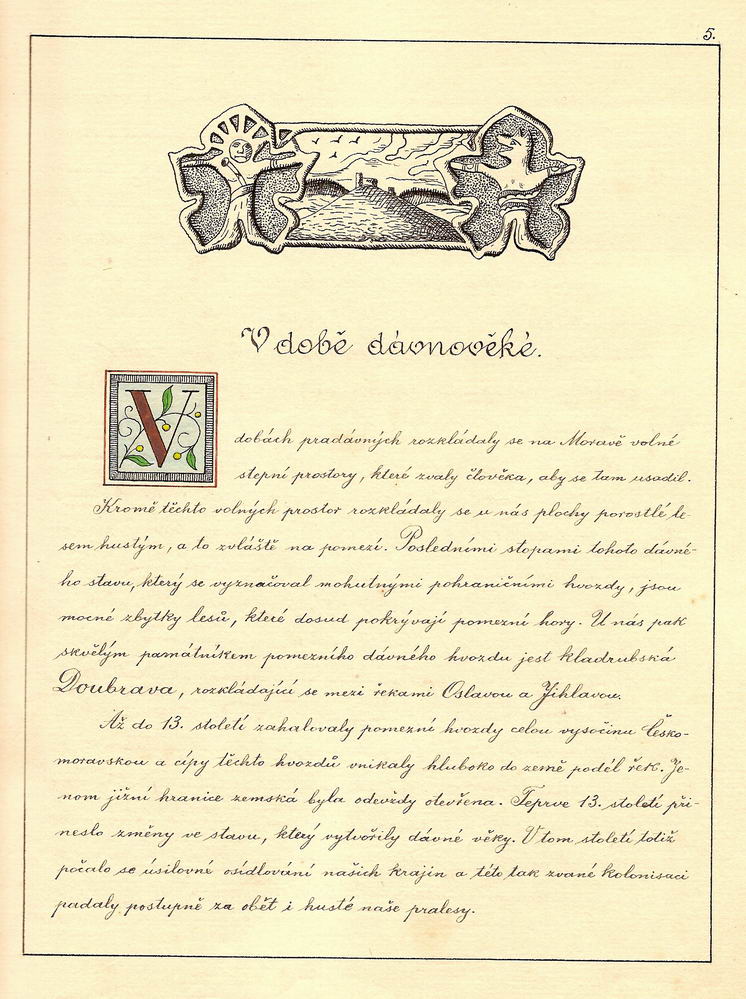 5.
V době dávnověké.
V dobách pradávných rozkládaly se na Moravě volné
stepní prostory, které zvaly člověka, aby se tam usadil.
Kromě těchto volných prostor rozkládaly se u nás plochy porostlé le-
sem hustým, a to zvláště na pomezí. Posledními stopami tohoto dávné-
ho stavu, který se vyznačoval mohutnými pohraničními hvozdy, jsou
mocné zbytky lesů, které dosud pokrývají pomezní hory. U nás pak
skvělým památníkem pomezního dávného hvozdu jest kladrubská
Doubrava, rozkládající se mezi řekami Oslavou a Jihlavou.
Až do 13. století zahalovaly pomezní hvozdy celou vysočinu Česko-
moravskou a cípy těchto hvozdů vnikaly hluboko do země podél řek. Je-
nom jižní hranice zemská byla odevždy otevřena. Teprve 13. století při-
neslo změny ve stavu, který vytvořily dávné věky. V tom století totiž
počalo se úsilovné osídlování našich krajin a této tak zvané kolonisaci
padaly postupně za oběť i husté naše pralesy.